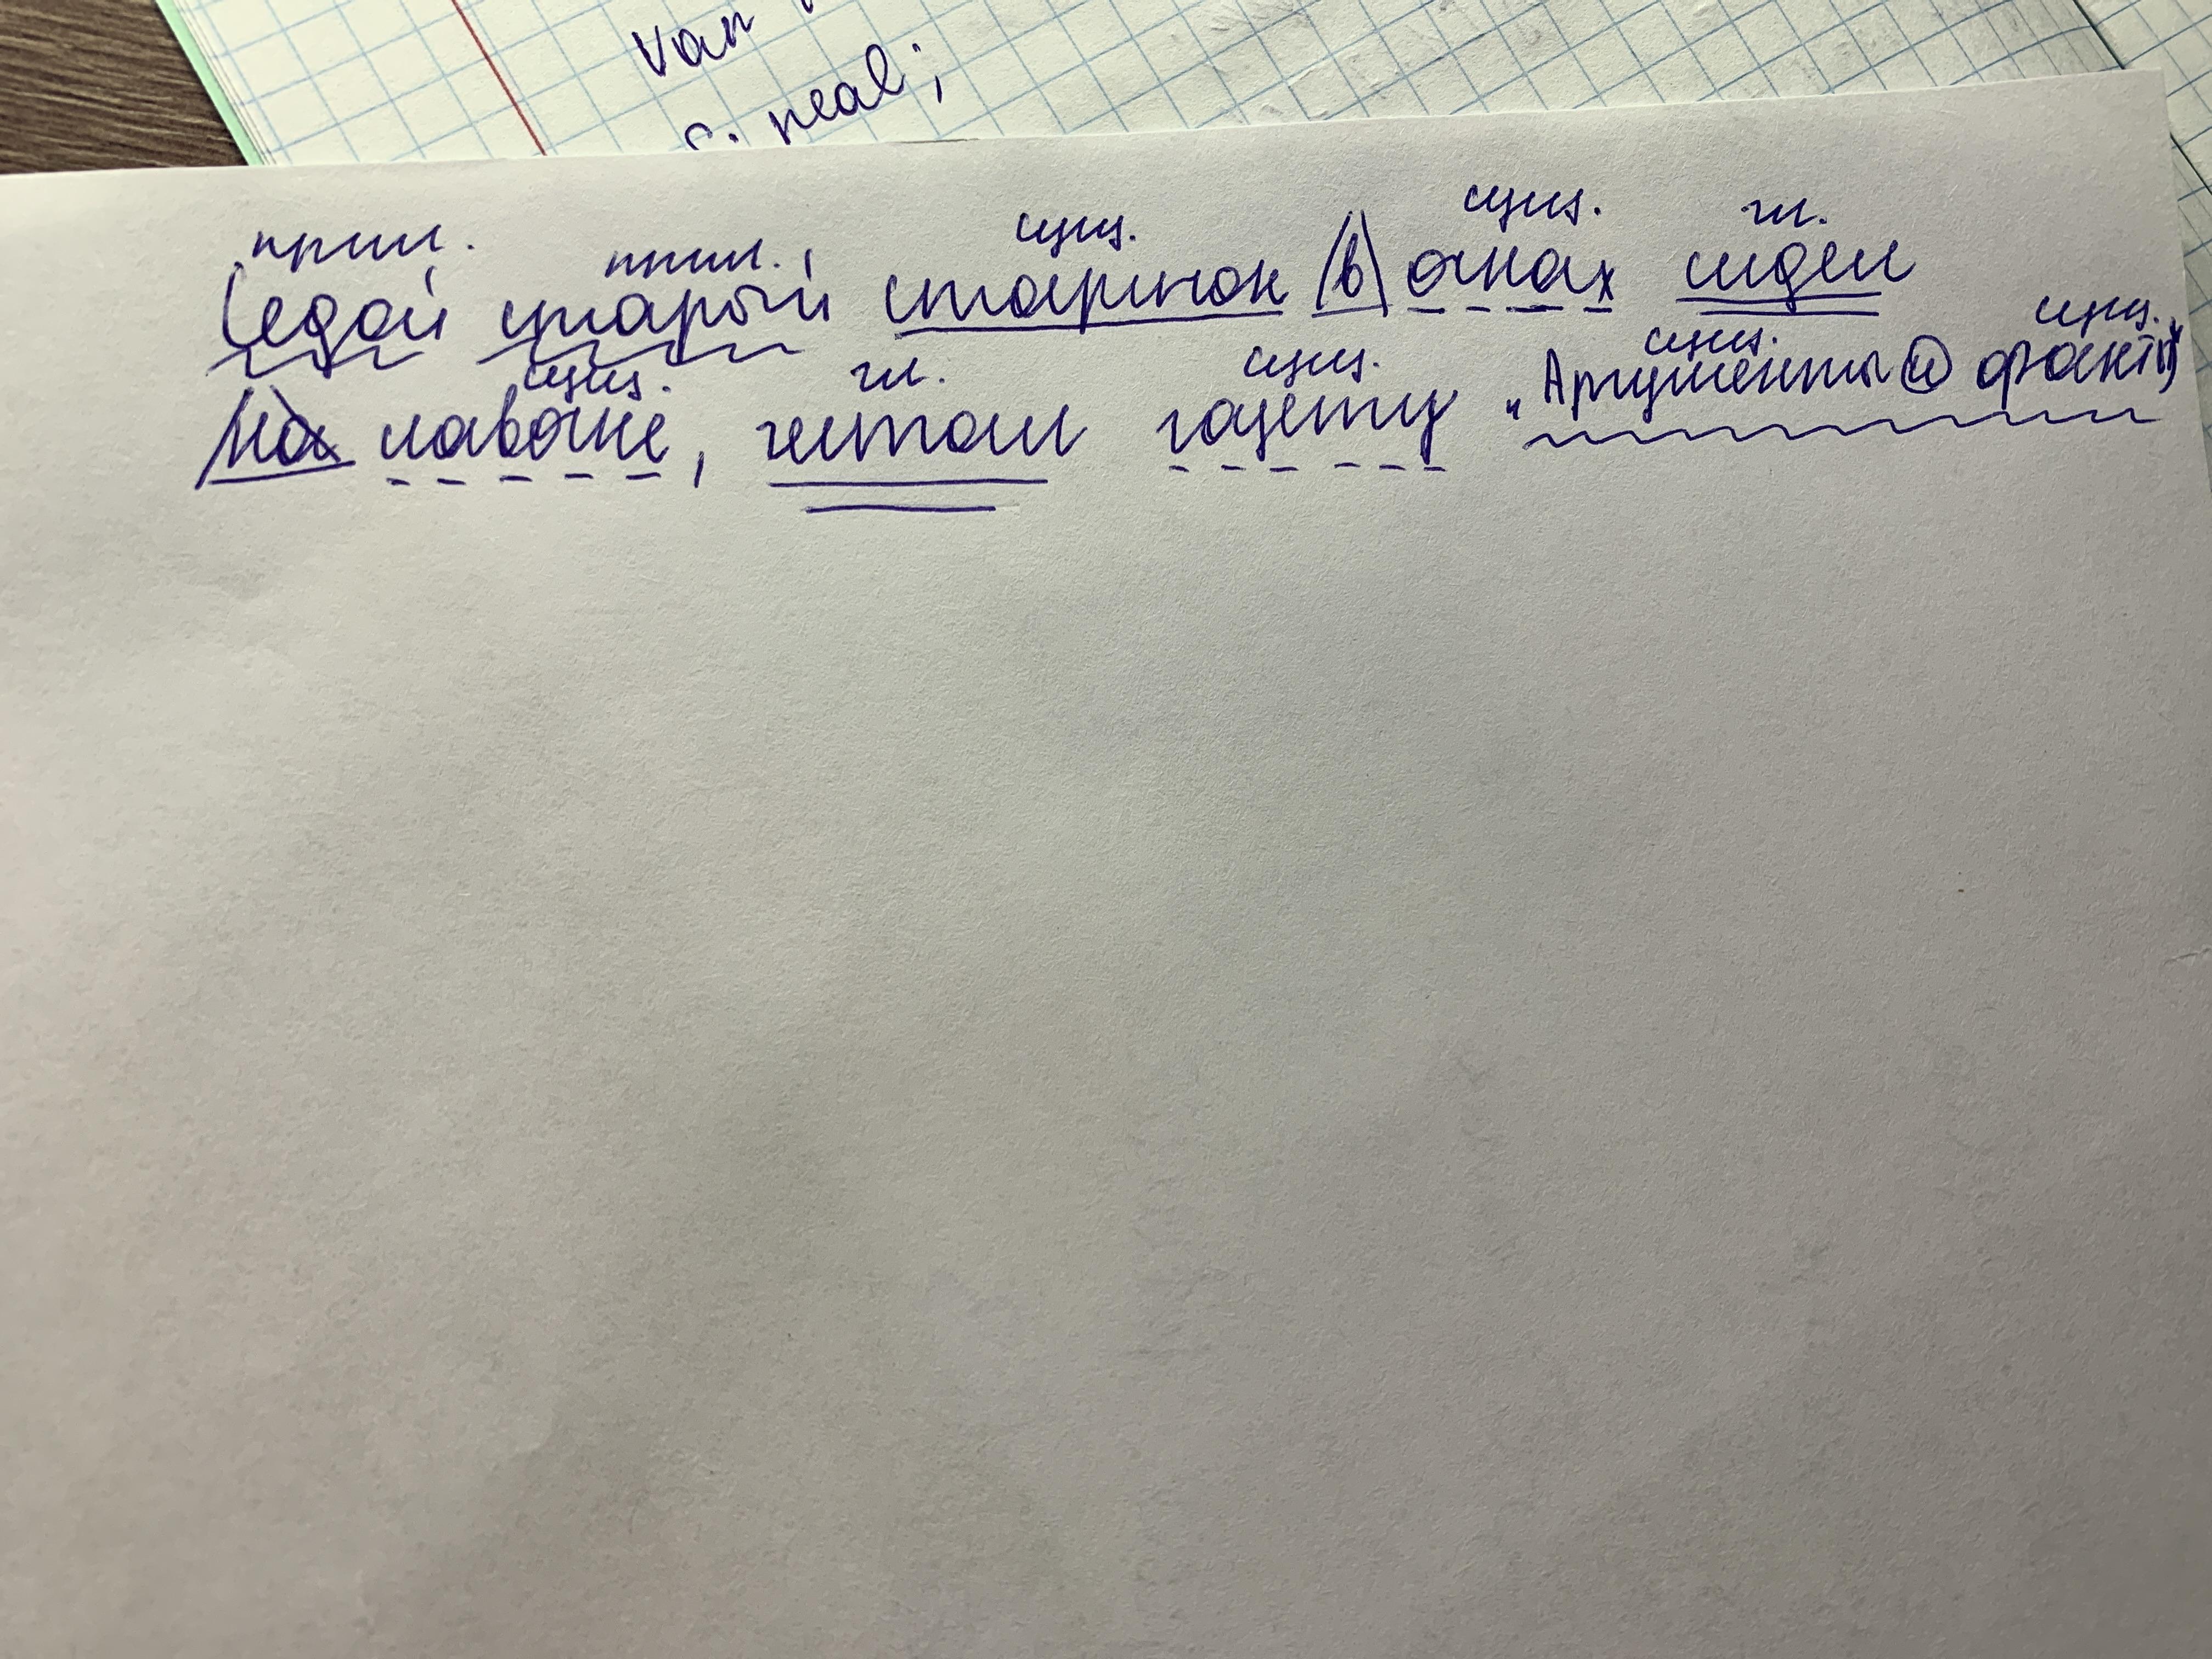 Van
neal;
прил. прил. сущ. сущ. гл.
Седой старый старичок (в) очках сидел
сущ. гл. сущ. сущ. сущ.
на лавочке, читал газету "Аргументы и факты"